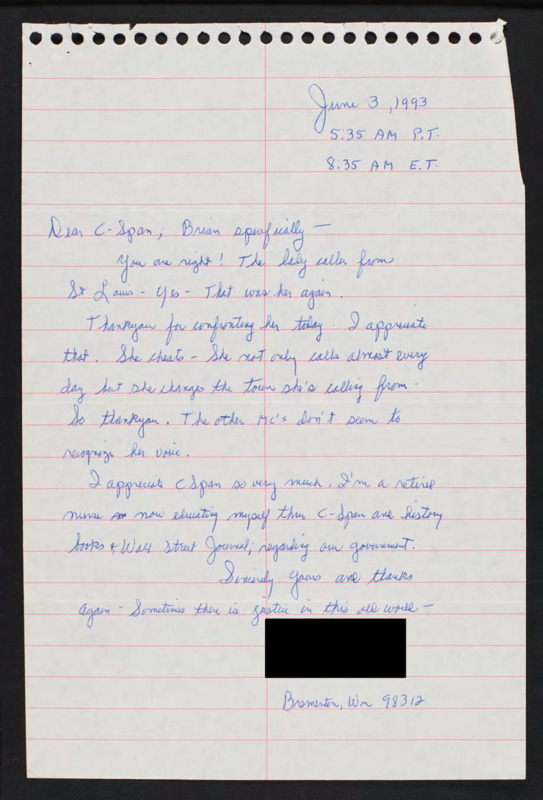 June 3, 1993
5:35 AM P.T.
8:35 AM E.T.
Dear C-Span, Brian specifically —
You are right! The lady caller from
St Louis - Yes - That was her again.
Thankyou for confronting her today. I appreciate
that. She cheats - She not only calls almost every
day but she changes the town she's calling from.
So thankyou. The other MC's don't seem to
recognize her voice.
I appreciate CSpan so very much. I'm a retired
nurse now educating myself thru C-Span and history
books & Wall Street Journal, regarding our government.
Sincerely yours and thanks
again - Sometimes there is justice in this old world —
Bremerton, Wn 98312